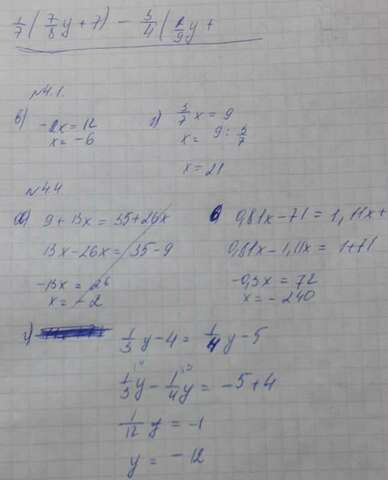 1/7 ( 7/8 y + 7) - 3/4 ( 2/9 y +
№4.1.
в) -2x = 12
x = -6
г) 3/7 x = 9
x = 9 : 3/7
x = 21
№4.4
а) 9 + 13x = 35 + 26x
13x - 26x = 35 - 9
-13x = 26
x = -2
0,81x - 71 = 1,11x +
0,81x - 1,11x = 1 + 71
-0,3x = 72
x = -240
1/3 y - 4 = 1/4 y - 5
1/3 y - 1/4 y = -5 + 4
1/12 y = -1
y = -12